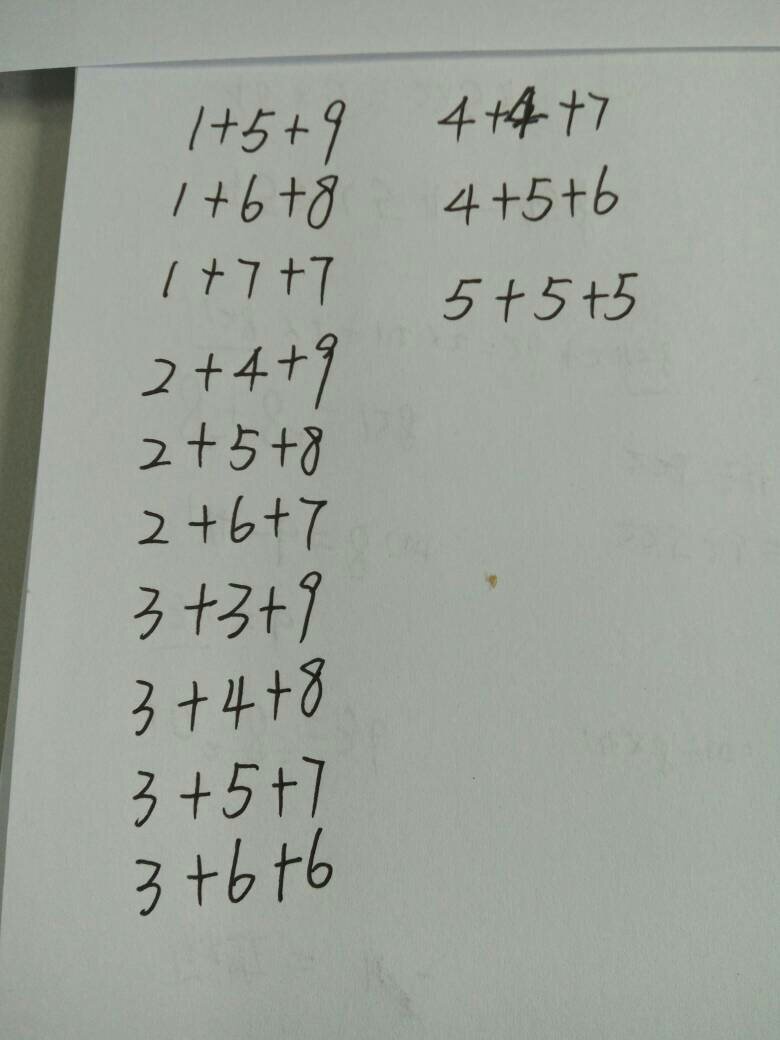 1+5+9
1+6+8
1+7+7
2+4+9
2+5+8
2+6+7
3+3+9
3+4+8
3+5+7
3+6+6
4+4+7
4+5+6
5+5+5